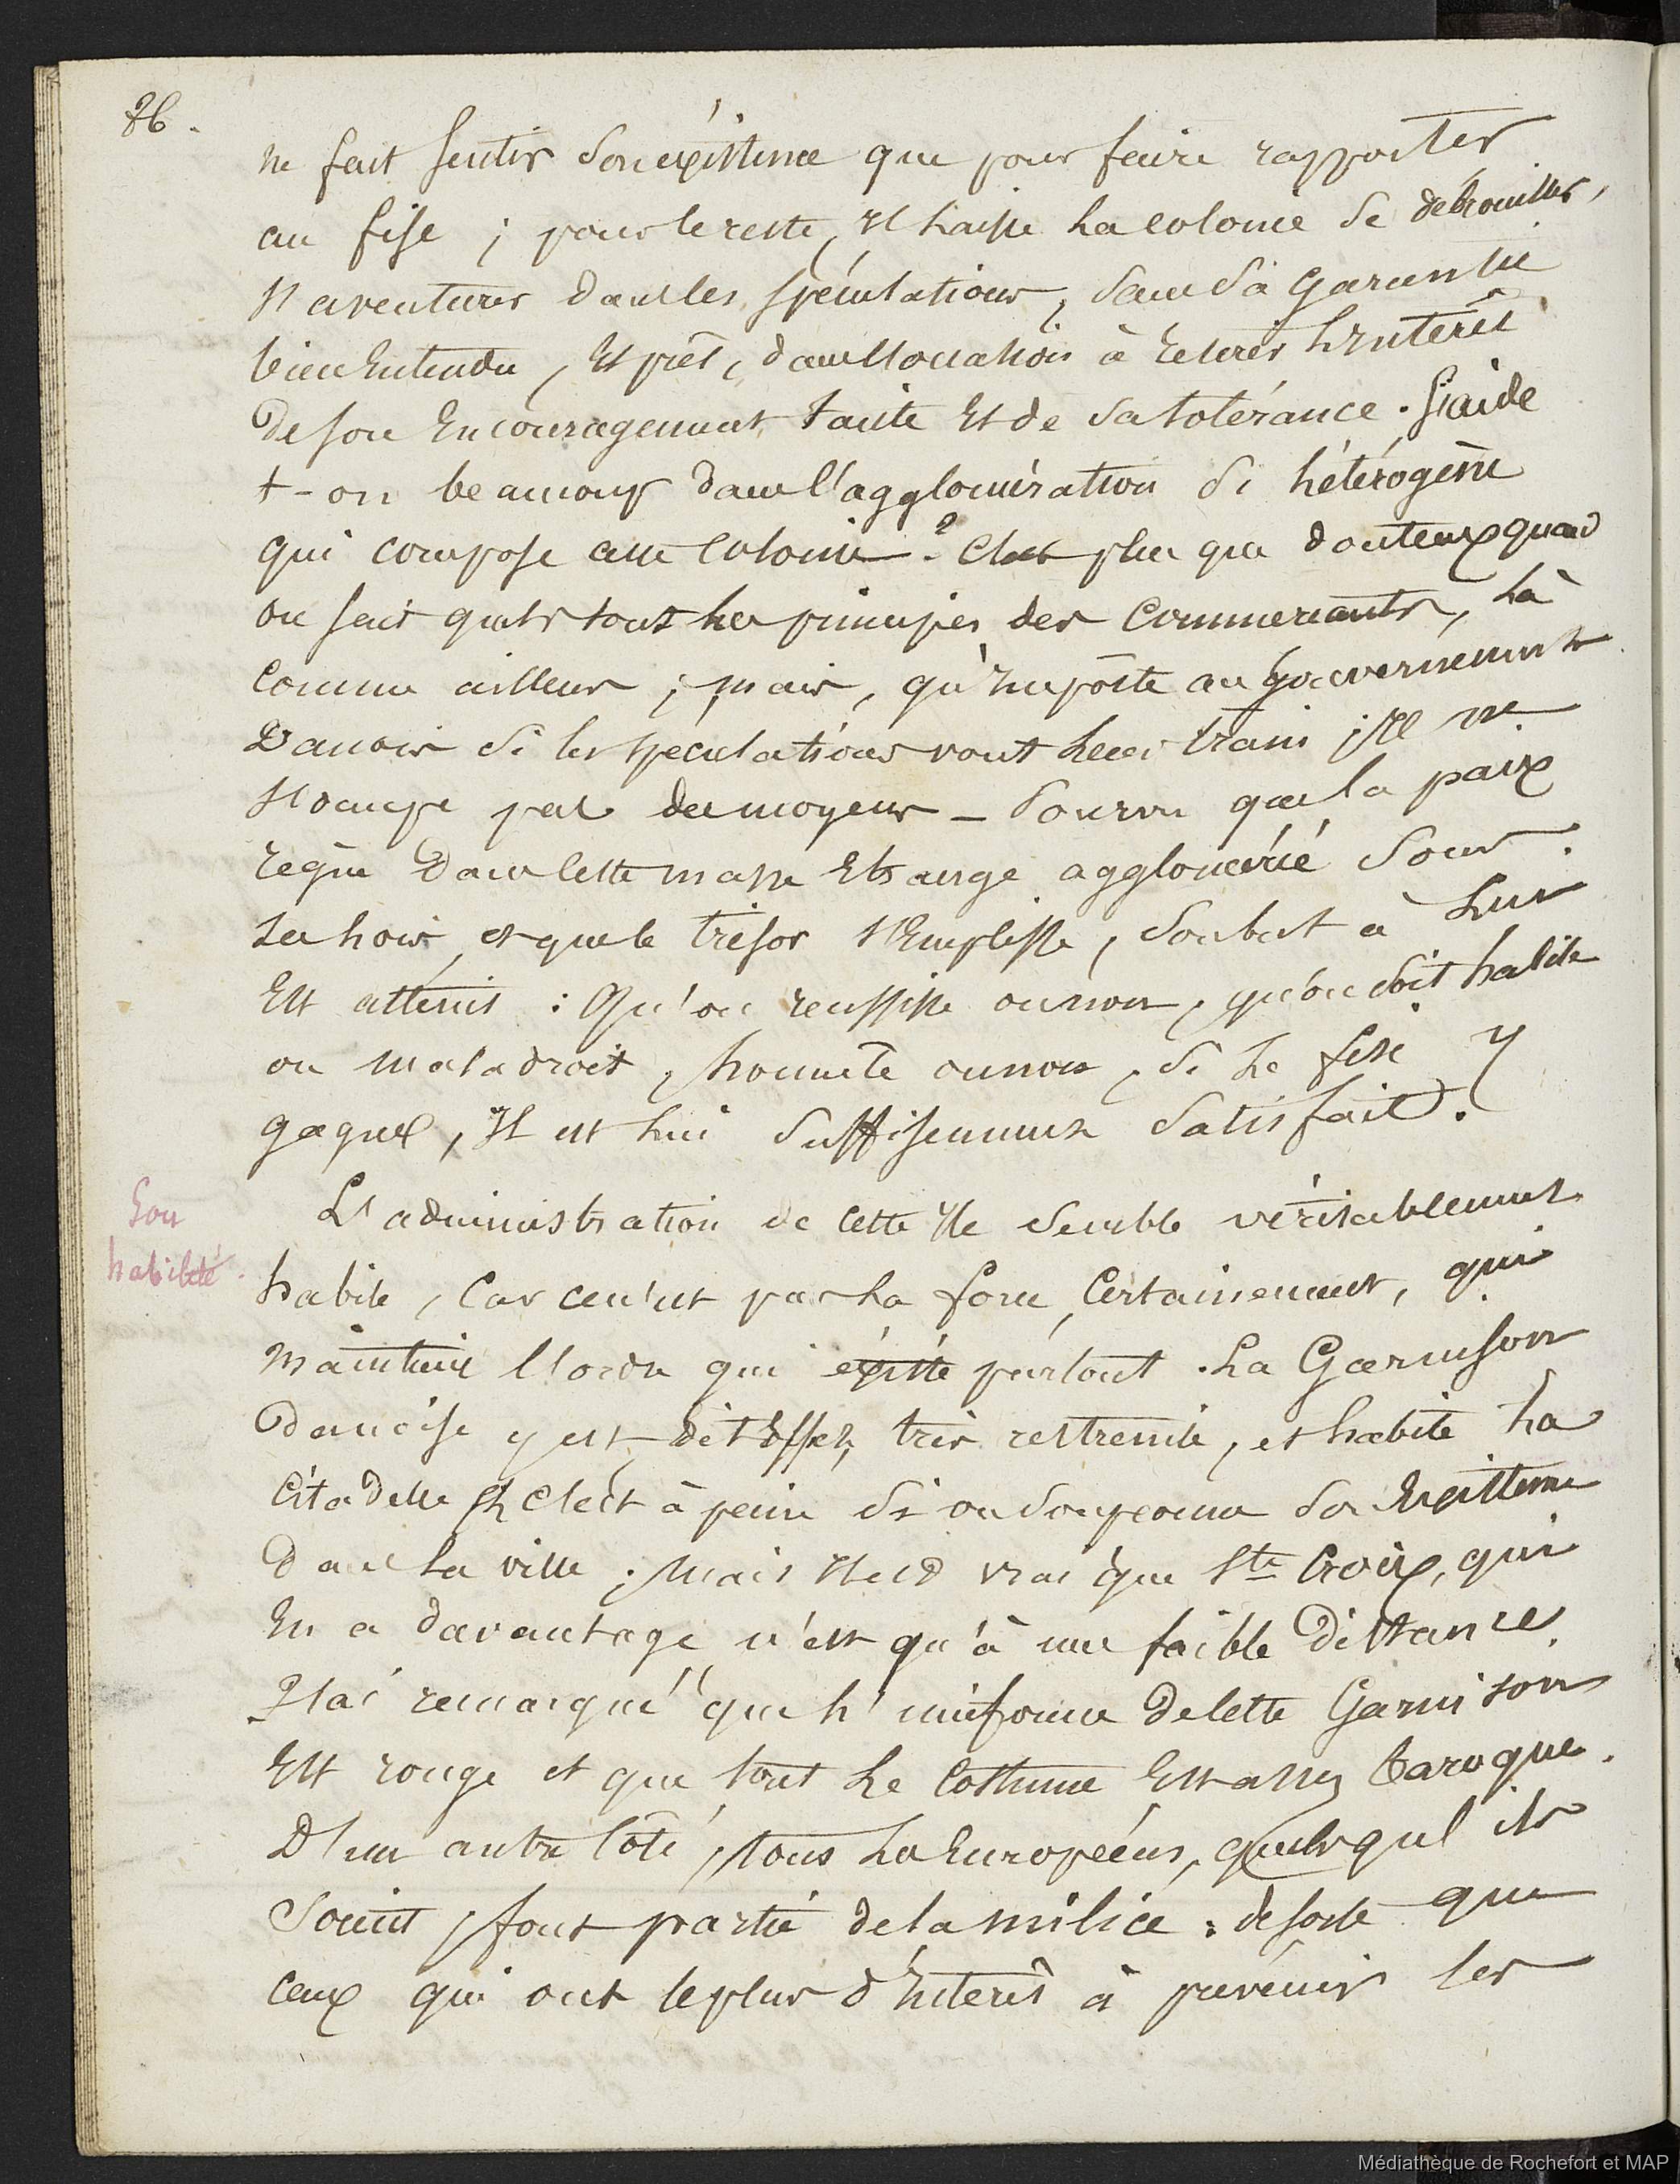 36.
ne fait sentir son existence que pour faire rapporter
au fisc ; pour le reste, Il laisse la colonie se débrouiller,
s'aventurer dans les spéculations, sans sa garantie
bien Entendu, Et prêt, dans l'occasion à retirer l'Intérêt
de son Encouragement tacite Et de sa tolérance. S'aide
t-on beaucoup dans l'agglomération si hétérogène
qui compose cette Colonie ? C'est plus que douteux quand
on sait quels sont les principes des Commerçants, là
comme ailleurs ; mais, qu'Importe au Gouvernement
Danois si les spéculations vont leur train ; Il ne
s'occupe pas des moyens _ Pourvu que la paix
règne Dans cette masse Etrange agglomérée sous
ses lois, et que le trésor s'Emplisse, son but à lui
Est atteint : Qu'on réussisse ou non, qu'on soit habile
ou maladroit, honnête ou non, si le fisc y
gagne, Il est lui suffisamment satisfait.
Son
habileté.
L'administration de cette Ile semble véritablement
habile, Car ce n'est pas la force, Certainement, qui
maintient l'ordre qui existe partout. La Garnison
Danoise y est, dit Effet, très restreinte, et habite la
Citadelle Et C'est à peine si on soupçonne son Existence
Dans la ville ; Mais Il est vrai que Ste Croix, qui
En a davantage n'est qu'à une faible Distance.
J'ai remarqué que l'uniforme de cette Garnison
Est rouge et que tout le Costume Est assez baroque.
D'un autre Côté, tous les Européens, quels qu'ils
soient, font partie de la milice : de sorte que
ceux qui ont le plus d'Intérêt à prévenir les
Médiathèque de Rochefort et MAP